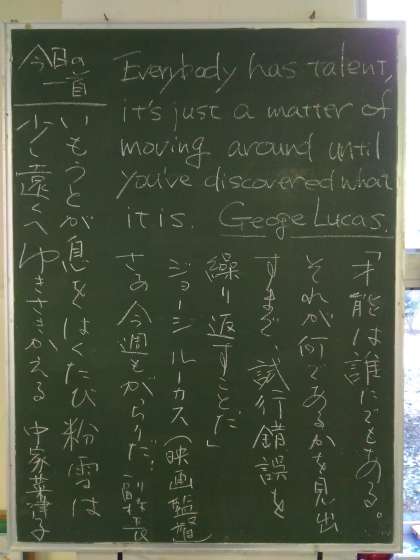 Everybody has talent,
it's just a matter of
moving around until
you've discovered what
it is. Geoge Lucas.
「才能は誰にでもある。
それが何であるかを見出
すまで、試行錯誤を
繰り返すことだ」
ジョージ・ルーカス（映画監督）
さあ今週もがっちりだ!
今日の
一首
いもうとが息をはくたび粉雪は
少し遠くへゆきさきかえる 中家菜津子